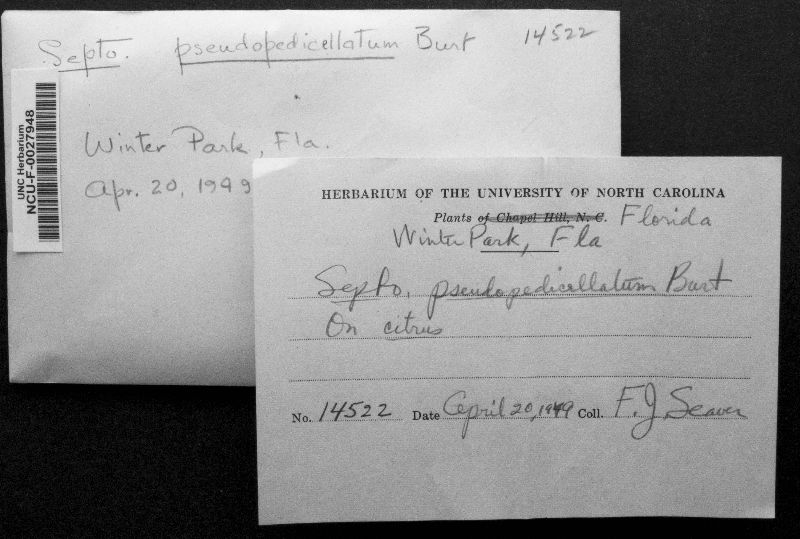 Septo. pseudopedicellatum Burt 14522
UNC Herbarium
NCU-F-0027948
Winter Park, Fla.
Apr. 20, 1949
HERBARIUM OF THE UNIVERSITY OF NORTH CAROLINA
Plants of Chapel Hill, N. C. Florida
Winter Park, Fla
Septo. pseudopedicellatum Burt
On citrus
No. 14522 Date April 20, 1949 Coll. F. J. Seaver